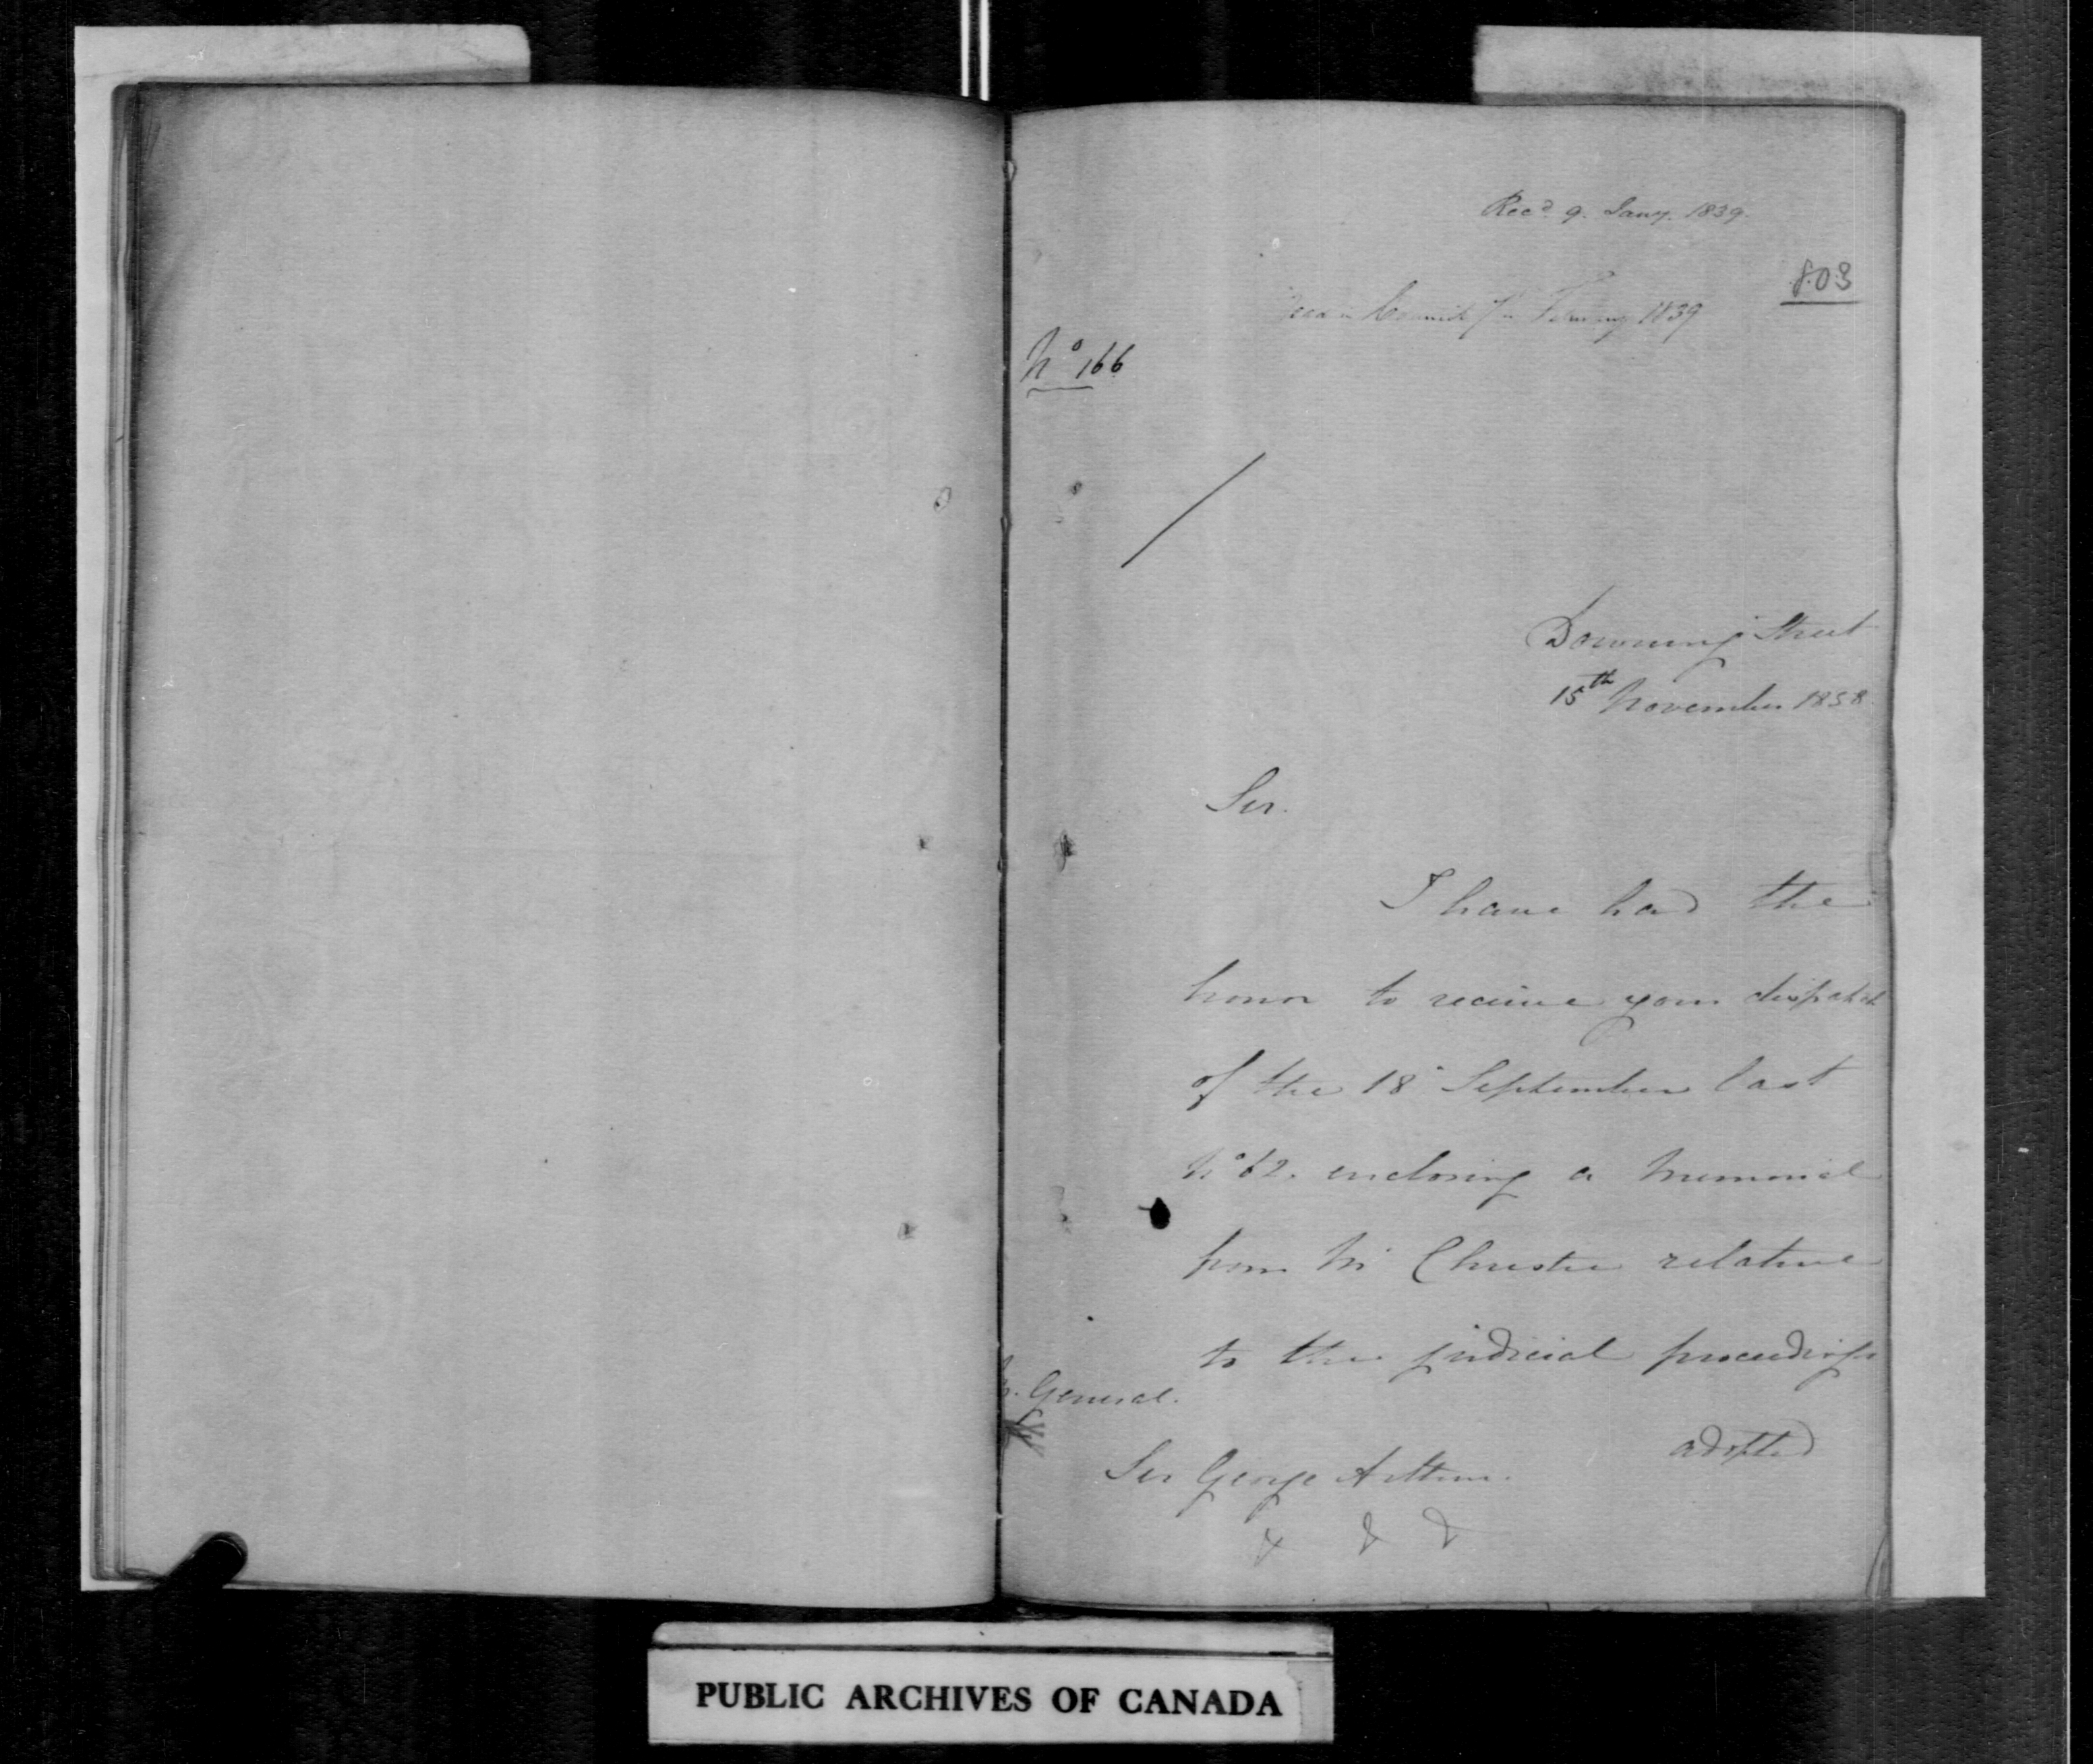 Recd. 9. Jany. 1839.
803
Read in Council 7th February 1839
No 166
Downing Street
15th November 1838
Sir.
I have had the
honor to receive your dispatch
of the 18 September last
No 62. enclosing a Memorial
from Mr Christie relative
to the judicial proceedings
adopted
General.
Sir George Arthur.
& & &
PUBLIC ARCHIVES OF CANADA